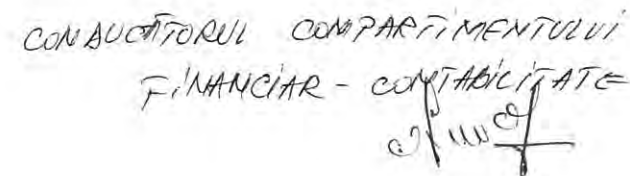 CONDUCĂTORUL COMPARTIMENTULUI
FINANCIAR - CONTABILITATE